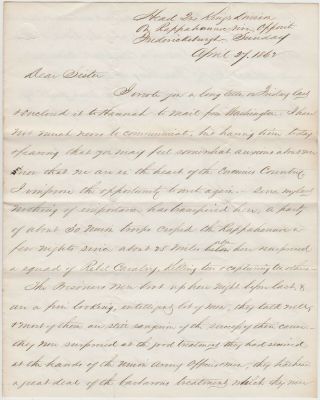 Head Qr King's Division
On Rappahannock River Opposite
Fredericksburgh Sunday
April 27, 1862
Dear Sister
I wrote you a long letter on Friday last
& enclosed it to Hannah to mail from Washington. I have
not much news to communicate, but having time today
& fearing that you may feel somewhat anxious about me
now that we are in the heart of the Enemies Country
I improve the opportunity to write again. Since my last
nothing of importance has transpired here, a party
of about 30 Union troops crossed the Rappahannock a
few nights since about 25 miles below here surprised
a squad of Rebel Cavalry, killing ten & capturing ten others
The Prisoners were brot up here night before last, &
are a fine looking, intelligent lot of men, they talk well,
& most of them are still sanguine of the success of their cause
they were surprised at the good treatment they had received
at the hands of the Union Army Officers & men, they had been
a great deal of the barbarous treatment which they were